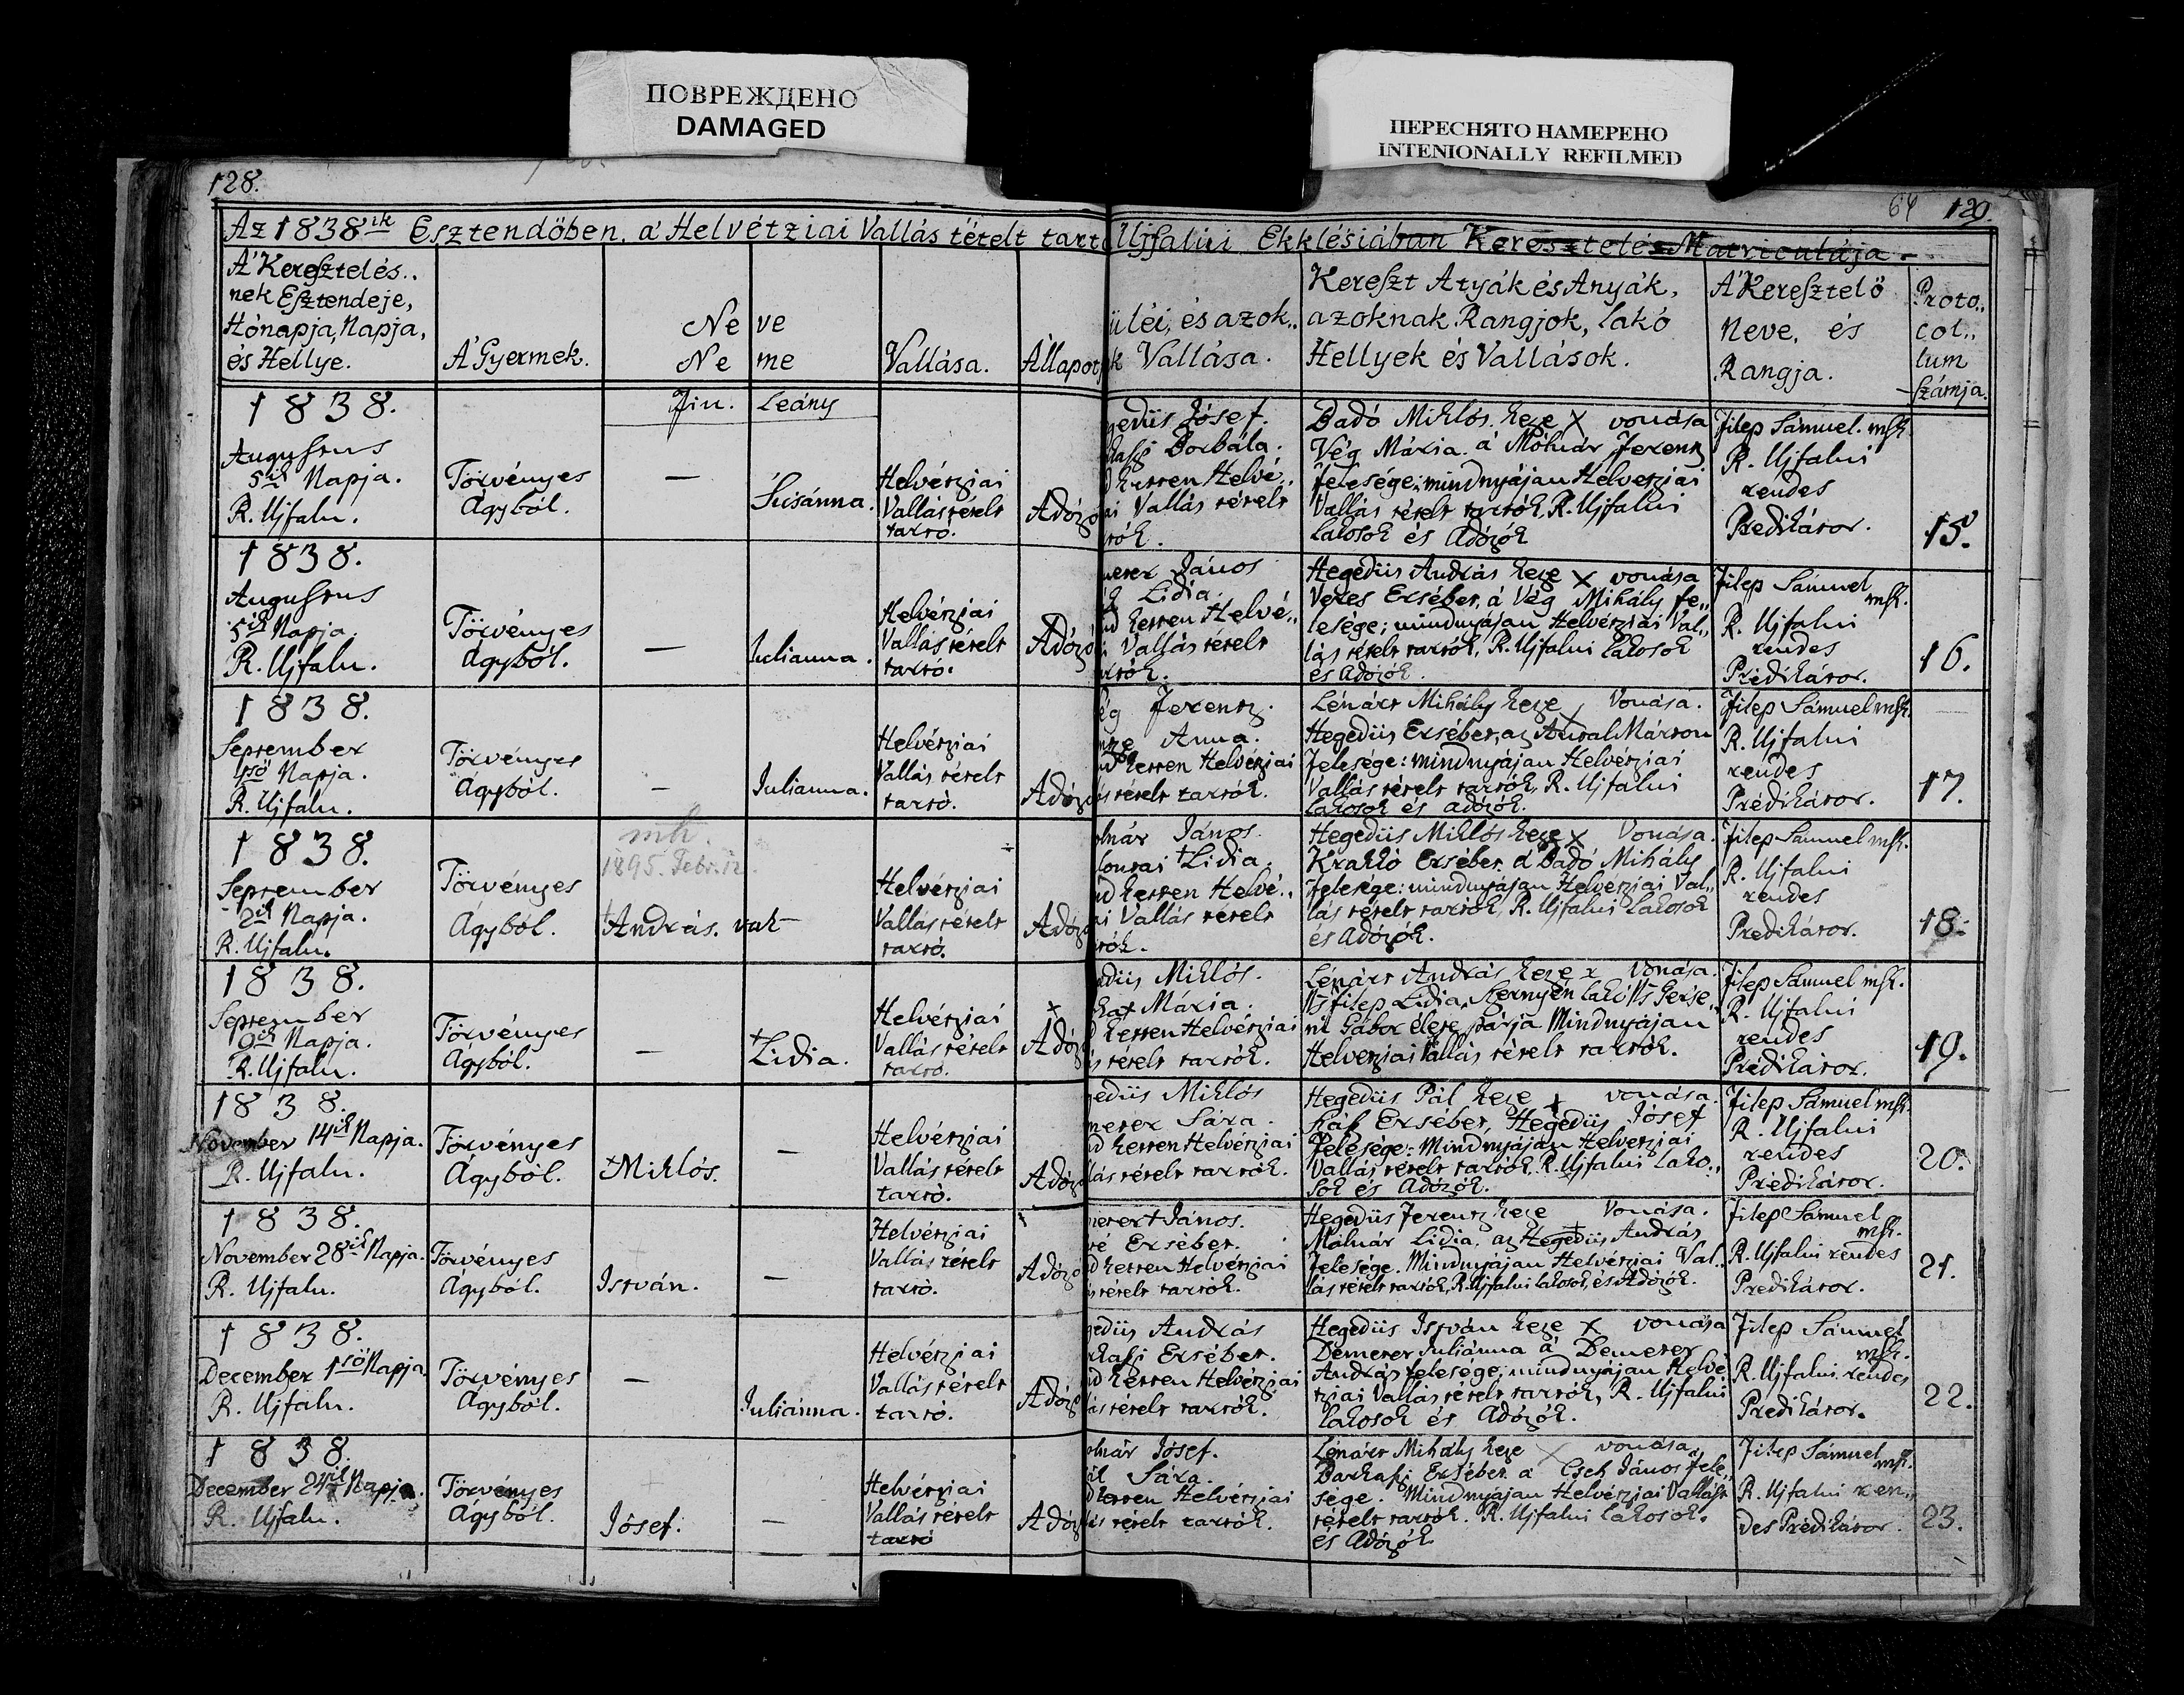 ПОВРЕЖДЕНО
DAMAGED
ПЕРЕСНЯТО НАМЕРЕНО
INTENIONALLY REFILMED
128.
64 129.
Az 1838ik Esztendőben. a' Helvétziai Vallás tételt tart Ujfalui Ekklésiában Keresztelés Matriculája.
A' Keresztelés..
nek Esztendeje,
Hónapja, Napja,
és Hellye.
A' Gyermek.
Ne ve
Ne me
Vallása.
Állapotj
üléi, és azok..
k Vallása.
Kereszt Atyák és Anyák,
azoknak Rangjok, lakó
Hellyek és Vallások.
A' Keresztelő
Neve, és
Rangja.
Proto..
col..
lum
Számja.
Fiu. Leány
1838.
Augustus
5ik Napja.
R. Ujfalu.
Törvényes
Ágyból.
—
Susánna.
Helvétziai
Vallás tételt
tartó.
Adózó
gedüs Jósef.
Borbála.
ketten Helvé..
ai Vallás tételt
rtók.
Dadó Miklós keze X vonása
Vég Mária. a' Mólnár Ferentz
felesége; mindnyájan Helvetziai
Vallás tételt tartók, R. Ujfalui
lakosok és Adózók
Filep Sámuel. mk.
R. Ujfalui
rendes
Prédikátor.
15.
1838.
Augustus
5ik Napja.
R. Ujfalu.
Törvényes
Ágyból.
—
Julianna.
Helvétziai
Vallás tételt
tartó.
Adózó
meter János
Lidia.
nd ketten Helvé..
i Vallás tételt
artók.
Hegedüs András keze X vonása
Veres Ersébet, a' Vég Mihály fe..
lesége; mindnyájan Helvétziai Val..
lás tételt tartók, R. Ujfalui lakosok
és Adózók.
Filep Sámuel
mk.
R. Ujfalui
rendes
Prédikátor.
16.
1838.
September
1ső Napja.
R. Ujfalu.
Törvényes
Ágyból.
—
Julianna.
Helvétziai
Vallás tételt
tartó.
Adózó
ég Ferentz.
Anna.
nd ketten Helvétziai
ás tételt tartók.
Lénárt Mihály keze X Vonása.
Hegedüs Ersébet, az Antal Márton
Felesége: mindnyájan Helvétziai
Vallás tételt tartók, R. Ujfalui
lakosok és adózók.
Filep Sámuel mk.
R. Ujfalui
rendes
Prédikátor.
17.
1838.
September
2ik Napja.
R. Ujfalu.
Törvényes
Ágyból.
mh.
1895. Febr. 12.
†András. vah
Helvétziai
Vallás tételt
tartó.
Adózó
olnár János.
†Lidia.
nd ketten Helvé..
ai Vallás tételt
rtók.
Hegedüs Miklós keze X Vonása.
Krakkó Ersébet. a' Dadó Mihály
Felesége: mindnyájan Helvétziai Val..
lás tételt tartók, R. Ujfalui lakosok
és Adózók.
Filep Sámuel mk.
R. Ujfalui
rendes
Prédikátor.
18.
1838.
September
9ik Napja.
R. Ujfalu.
Törvényes
Ágyból.
—
†Lidia.
Helvétziai
Vallás tételt
tartó.
X
Adózó
edüs Miklós.
Mária.
d ketten Helvétziai
ás tételt tartók.
Lénárt András keze x Vonása.
Ns Filep Lidia, Szernyén lakó Ns Getse..
ni Gábor élete párja Mindnyájan
Helvetziai Vallás tételt tartók.
Filep Sámuel mk.
R. Ujfalui
rendes
Prédikátor.
19.
1838.
November 14ik Napja.
R. Ujfalu.
Törvényes
Ágyból.
†Miklós.
—
Helvétziai
Vallás tételt
tartó.
Adózó
gedüs Miklós
meter Sára.
nd ketten Helvétziai
lás tételt tartók.
Hegedüs Pál keze X vonása.
Ersébet, Hegedüs Jósef
Felesége: Mindnyájan Helvetziai
Vallás tételt tartók. R. Ujfalui lako..
sok és Adózók.
Filep Sámuel mk.
R. Ujfalui
rendes
Prédikátor.
20.
1838.
November 28ik Napja.
R. Ujfalu.
Törvényes
Ágyból.
István.
—
Helvétziai
Vallás tételt
tartó.
Adózó
meter† János.
Ersébet.
d ketten Helvétziai
s tételt tartók.
Hegedüs Ferentz keze Vonása.
Mólnár Lidia, az Hegedüs András
felesége. Mindnyájan Helvétziai Val..
lás tételt tartók, R. Ujfalui lakosok, és Adózók.
Filep Sámuel
mk.
R. Ujfalui rendes
Prédikátor.
21.
1838.
December 1ső Napja.
R. Ujfalu.
Törvényes
Ágyból.
—
Juliánna.
Helvétziai
Vallás tételt
tartó.
Adózó
gedüs András
Ersébet.
d ketten Helvétziai
ás tételt tartók.
Hegedüs István keze X vonása
Demeter Juliánna a' Demeter
András felesége; mindnyájan Helvé
tziai Vallás tételt tartók, R. Ujfalui
lakosok és Adózók.
Filep Sámuel
mk.
R. Ujfalui rendes
Prédikátor.
22.
1838.
December 24ik Napja.
R. Ujfalu.
Törvényes
Ágyból.
Jósef.
—
Helvétziai
Vallás tételt
tartó
Adózó
olnár Jósef.
Sára.
d ketten Helvétziai
ás tételt tartók.
Lénárt Mihály keze X vonása,
Barkaszi Ersébet a' Cseh János fele..
sége. Mindnyájan Helvétziai Vallást
tételt tartók. R. Ujfalui lakosok.
és Adózók
Filep Sámuel
mk.
R. Ujfalui ren..
des Prédikátor.
23.